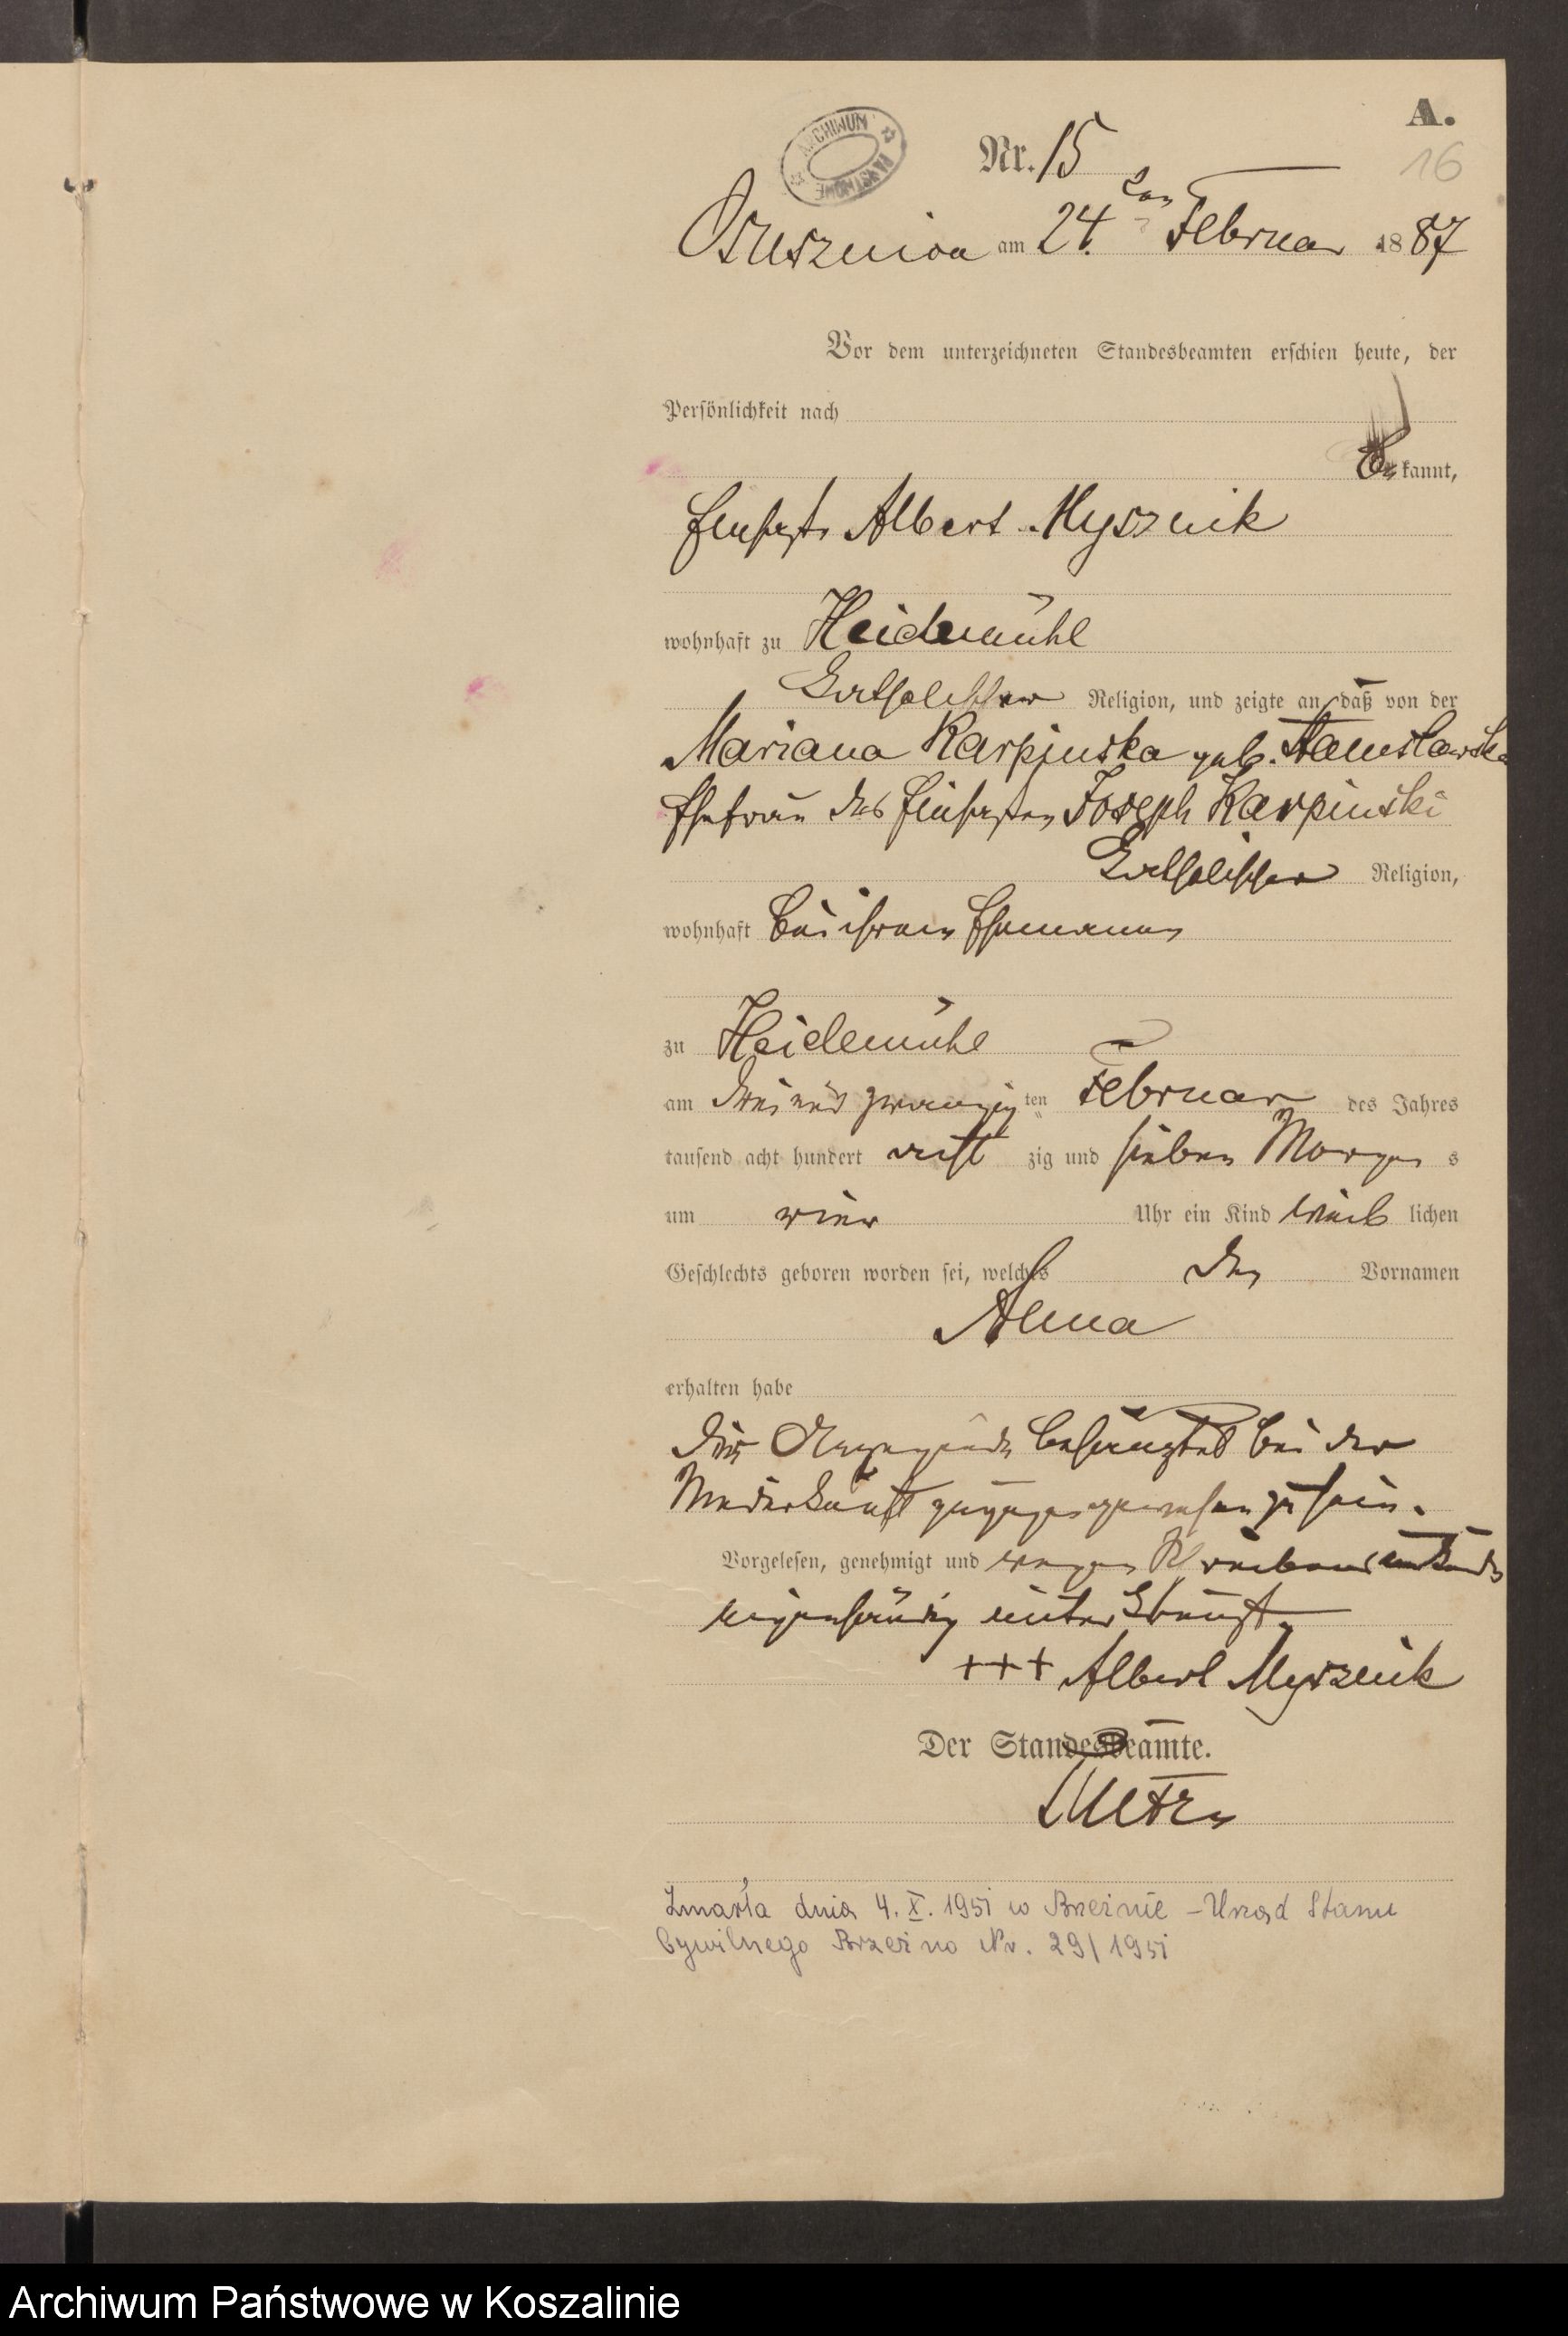 A.
ARCHIWUM PAŃSTWOWE
Nr. 15
16
Osusznica am 24. ten Februar 1887
Vor dem unterzeichneten Standesbeamten erschien heute, der
Persönlichkeit nach
be kannt,
Albert Myszcik
wohnhaft zu Heidemühl
katholischer Religion, und zeigte an, daß von der
Mariana Karpinska geb. Stanislawska
Ehefrau des Joseph Karpinski
katholischer Religion,
wohnhaft bei ihrem Ehemann
zu Heidemühl
am drei und zwanzig ten Februar des Jahres
tausend acht hundert acht zig und sieben Morgen s
um vier Uhr ein Kind weib lichen
Geschlechts geboren worden sei, welches den Vornamen
Anna
erhalten habe
Der Anzeigende bei der
Niederkunft zugegen gewesen zu sein.
Vorgelesen, genehmigt und wegen
eigenhändig unterkreuzt
+++ Albert Myszcik
Der Standesbeamte.
Zmarła dnia 4. X. 1951 w Brzeźnie - Urząd Stanu
Cywilnego Brzeźno Nr. 29/1951
Archiwum Państwowe w Koszalinie